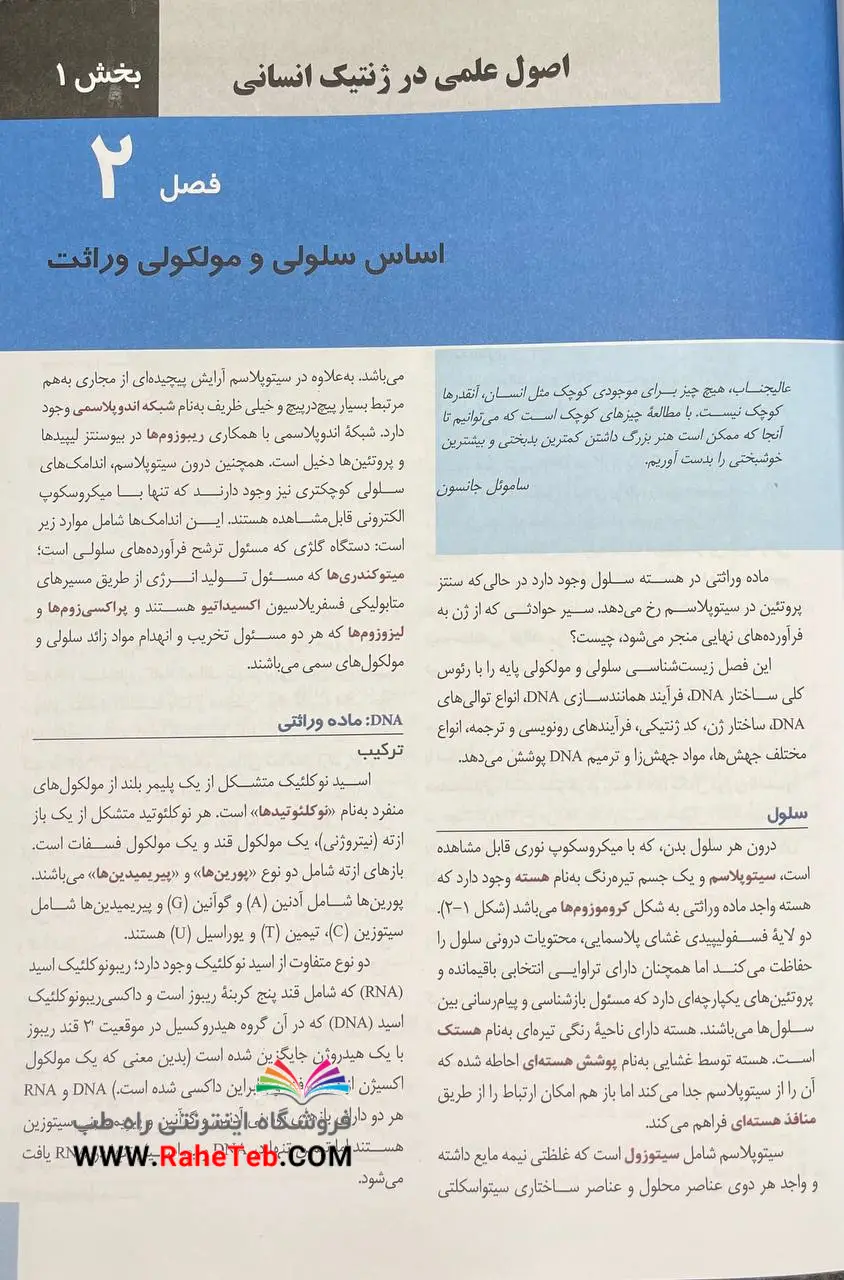 اصول علمی در ژنتیک انسانی
بخش ۱
فصل ۲
اساس سلولی و مولکولی وراثت
عالیجناب، هیچ چیز برای موجودی کوچک مثل انسان، آنقدرها
کوچک نیست. با مطالعهٔ چیزهای کوچک است که می‌توانیم تا
آنجا که ممکن است هنر بزرگ داشتن کمترین بدبختی و بیشترین
خوشبختی را بدست آوریم.
ساموئل جانسون
ماده وراثتی در هسته سلول وجود دارد در حالی‌که سنتز
پروتئین در سیتوپلاسم رخ می‌دهد. سیر حوادثی که از ژن به
فرآورده‌های نهایی منجر می‌شود، چیست؟
این فصل زیست‌شناسی سلولی و مولکولی پایه را با رئوس
کلی ساختار DNA، فرآیند همانندسازی DNA، انواع توالی‌های
DNA، ساختار ژن، کد ژنتیکی، فرآیندهای رونویسی و ترجمه، انواع
مختلف جهش‌ها، مواد جهش‌زا و ترمیم DNA پوشش می‌دهد.
سلول
درون هر سلول بدن، که با میکروسکوپ نوری قابل مشاهده
است، سیتوپلاسم و یک جسم تیره‌رنگ به‌نام هسته وجود دارد که
هسته واجد ماده وراثتی به شکل کروموزوم‌ها می‌باشد (شکل ۱–۲).
دو لایهٔ فسفولیپیدی غشای پلاسمایی، محتویات درونی سلول را
حفاظت می‌کند اما همچنان دارای تراوایی انتخابی باقیمانده و
پروتئین‌های یکپارچه‌ای دارد که مسئول بازشناسی و پیام‌رسانی بین
سلول‌ها می‌باشند. هسته دارای ناحیهٔ رنگی تیره‌ای به‌نام هستک
است. هسته توسط غشایی به‌نام پوشش هسته‌ای احاطه شده که
آن را از سیتوپلاسم جدا می‌کند اما باز هم امکان ارتباط را از طریق
منافذ هسته‌ای فراهم می‌کند.
سیتوپلاسم شامل سیتوزول است که غلظتی نیمه مایع داشته
و واجد هر دوی عناصر محلول و عناصر ساختاری سیتواسکلتی
می‌باشد. به‌علاوه در سیتوپلاسم آرایش پیچیده‌ای از مجاری به‌هم
مرتبط بسیار پیچ‌درپیچ و خیلی ظریف به‌نام شبکه اندوپلاسمی وجود
دارد. شبکهٔ اندوپلاسمی با همکاری ریبوزوم‌ها در بیوسنتز لیپیدها
و پروتئین‌ها دخیل است. همچنین درون سیتوپلاسم، اندامک‌های
سلولی کوچکتری نیز وجود دارند که تنها با میکروسکوپ
الکترونی قابل‌مشاهده هستند. این اندامک‌ها شامل موارد زیر
است: دستگاه گلژی که مسئول ترشح فرآورده‌های سلولی است؛
میتوکندری‌ها که مسئول تولید انرژی از طریق مسیرهای
متابولیکی فسفریلاسیون اکسیداتیو هستند و پراکسی‌زوم‌ها و
لیزوزوم‌ها که هر دو مسئول تخریب و انهدام مواد زائد سلولی و
مولکول‌های سمی می‌باشند.
DNA: ماده وراثتی
ترکیب
اسید نوکلئیک متشکل از یک پلیمر بلند از مولکول‌های
منفرد به‌نام «نوکلئوتیدها» است. هر نوکلئوتید متشکل از یک باز
ازته (نیتروژنی)، یک مولکول قند و یک مولکول فسفات است.
بازهای ازته شامل دو نوع «پورین‌ها» و «پیریمیدین‌ها» می‌باشند.
پورین‌ها شامل آدنین (A) و گوآنین (G) و پیریمیدین‌ها شامل
سیتوزین (C)، تیمین (T) و یوراسیل (U) هستند.
دو نوع متفاوت از اسید نوکلئیک وجود دارد؛ ریبونوکلئیک اسید
(RNA) که شامل قند پنج کربنهٔ ریبوز است و داکسی‌ریبونوکلئیک
اسید (DNA) که در آن گروه هیدروکسیل در موقعیت ۲' قند ریبوز
با یک هیدروژن جایگزین شده است (بدین معنی که یک مولکول
اکسیژن از داکسی شده است.) DNA و RNA
هر دو دارای و گوآنین و سیتوزین
هستند DNA RNA یافت
می‌شود.
فروشگاه اینترنتی راه طب
www.RaheTeb.COM